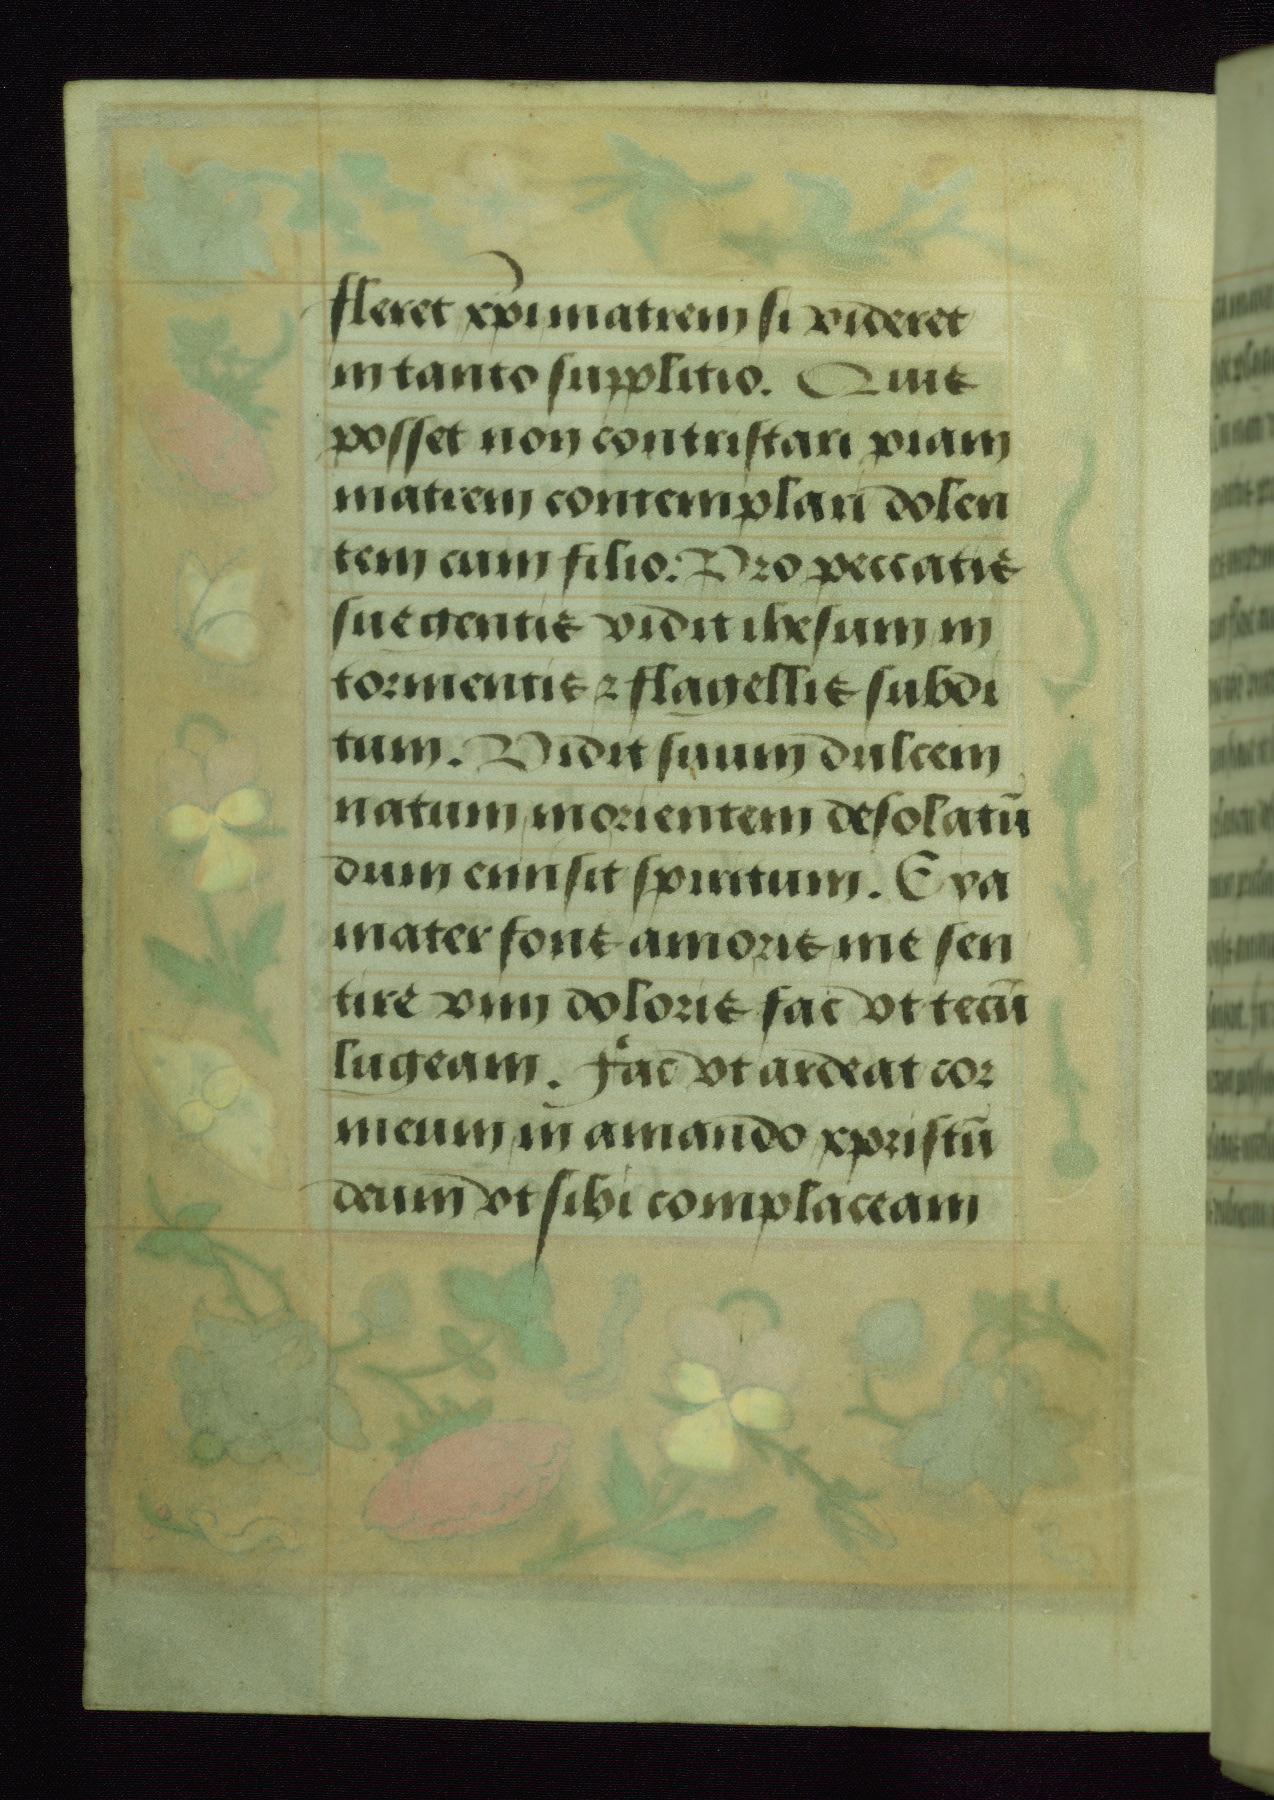 fleret xp̄i matrem si videret
in tanto supplitio. Quis
posset non contristari piam
matrem contemplari dolen
tem cum filio: Pro peccatis
sue gentis vidit ihesum in
tormentis ⁊ flagellis subdi
tum. Vidit suum dulcem
natum morientem desolatū
dum emisit spiritum. Eya
mater fons amoris me sen
tire vim doloris fac vt tecū
lugeam. Fac vt ardeat cor
meum in amando xpristū
deum vt sibi complaceam